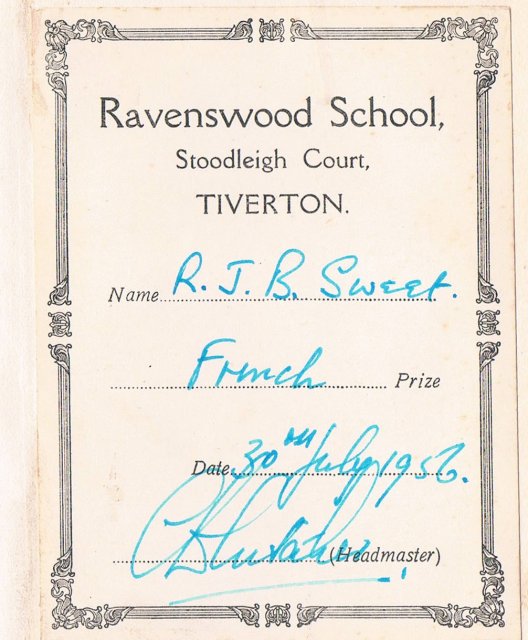 Ravenswood School,
Stoodleigh Court,
TIVERTON.
Name R. J. B. Sweet.
French Prize
Date 30TH July 1956.
(Headmaster)